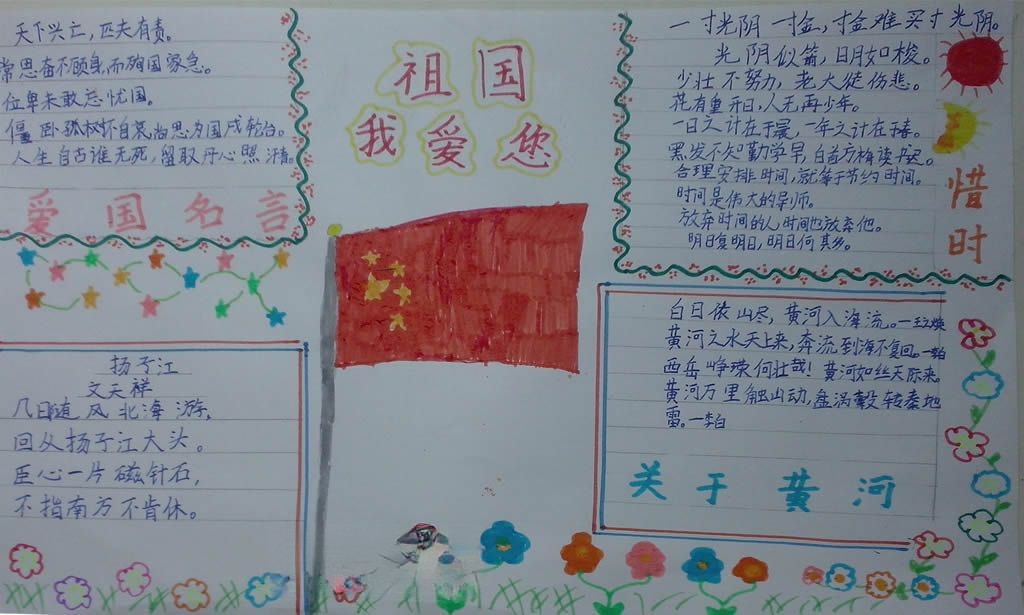 天下兴亡，匹夫有责。
常思奋不顾身，而殉国家急。
位卑未敢忘忧国。
僵卧孤村不自哀尚思为国戍轮台。
人生自古谁无死，留取丹心照汗青。
爱国名言
祖国
我爱您
一寸光阴一寸金，寸金难买寸光阴。
光阴似箭，日月如梭。
少壮不努力，老大徒伤悲。
花有重开日，人无再少年。
一日之计在于晨，一年之计在于春。
黑发不知勤学早，白首方悔读书迟。
合理安排时间，就等于节约时间。
时间是伟大的导师。
放弃时间的人时间也放弃他。
明日复明日，明日何其多。
惜时
扬子江
文天祥
几日随风北海游，
回从扬子江大头。
臣心一片磁针石，
不指南方不肯休。
白日依山尽，黄河入海流。一王之涣
黄河之水天上来，奔流到海不复回。一李白
西岳峥嵘何壮哉！黄河如丝天际来。
黄河万里触山动，盘涡毂转秦地
雷。一李白
关于黄河